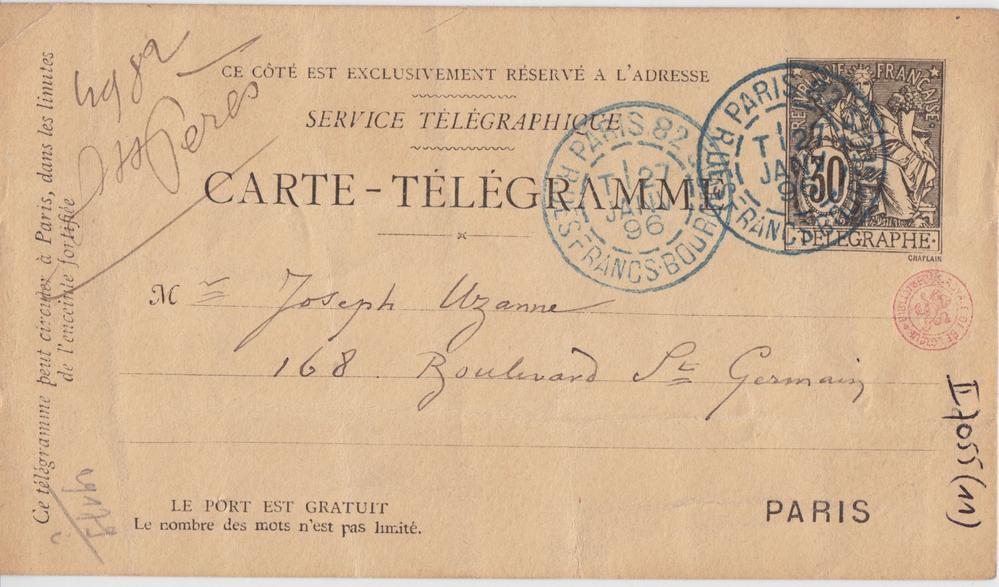 CE CÔTÉ EST EXCLUSIVEMENT RÉSERVÉ A L'ADRESSE
SERVICE TÉLÉGRAPHIQUE
CARTE-TÉLÉGRAMME
PARIS 82
27
JANV
96
R. DES FRANCS-BOURGEOIS
PARIS 82
27
JANV
96
RÉPUBLIQUE FRANÇAISE
30
TÉLÉGRAPHE
CHAPLAIN
Mr Joseph Uzanne
168 Boulevard St Germain
LE PORT EST GRATUIT
Le nombre des mots n'est pas limité.
PARIS
Ce télégramme peut circuler à Paris, dans les limites
de l'enceinte fortifiée
4982
II 7055 (11)